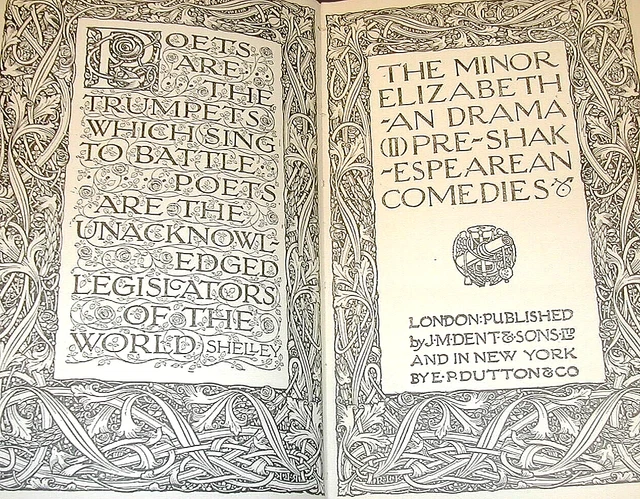 POETS
ARE THE
TRUMPETS
WHICH SING
TO BATTLE
POETS
ARE THE
UNACKNOWL-
EDGED
LEGISLATORS
OF THE
WORLD SHELLEY
THE MINOR
ELIZABETH
-AN DRAMA
(II) PRE-SHAK
-ESPEAREAN
COMEDIES
LONDON: PUBLISHED
by J. M. DENT & SONS LTD
AND IN NEW YORK
BY E. P. DUTTON & CO